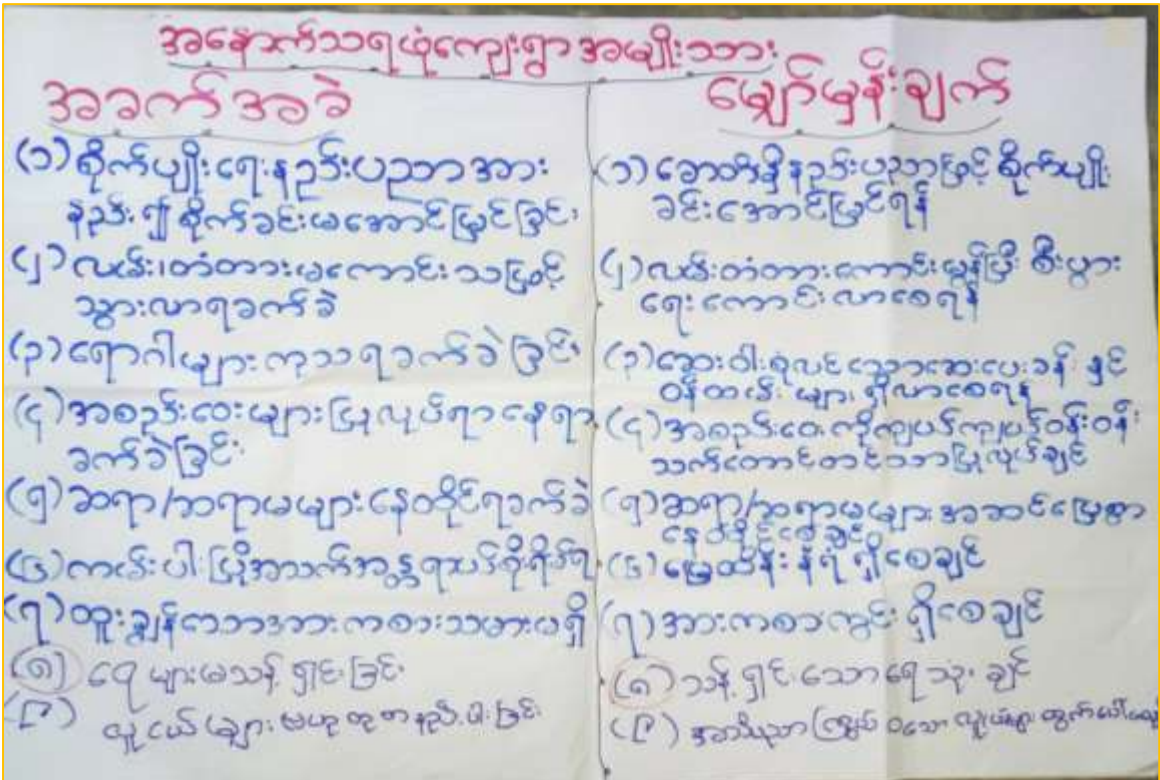 အနောက်သရဖုံကျေးရွာအမျိုးသား
အခက်အခဲ
(၁) စိုက်ပျိုးရေးနည်းပညာအား
နည်း၍ စိုက်ခင်းမအောင်မြင်ခြင်း
(၂) လမ်း၊တံတားမကောင်းသဖြင့်
သွားလာရခက်ခဲ
(၃) ရောဂါများကုသရခက်ခဲခြင်း
(၄) အစည်းဝေးများပြုလုပ်ရာနေရာ
ခက်ခဲခြင်း
(၅) ဆရာ/ဆရာမများနေထိုင်ရခက်ခဲ
(၆) ကမ်းပါးပြိုအသက်အန္တရာယ်စိုးရိမ်ရ
(၇) ထူးချွန်သောအားကစားသမားမရှိ
(၈) ရေများမသန့်ရှင်းခြင်း
(၉) လူငယ်များ ဗဟုသုတနည်းပါးခြင်း
မျှော်မှန်းချက်
(၁) ခေတ်မှီနည်းပညာဖြင့် စိုက်ပျိုး
ခင်းအောင်မြင်ရန်
(၂) လမ်းတံတားကောင်းမွန်ပြီး စီးပွား
ရေးကောင်းလာစေရန်
(၃) ဆေးဝါးစုံလင်သောဆေးပေးခန်း နှင့်
ဝန်ထမ်းများ ရှိလာစေရန်
(၄) အစည်းဝေးကိုကျယ်ကျယ်ဝန်းဝန်း
သက်တောင့်တင်သာပြုလုပ်ချင်
(၅) ဆရာ/ဆရာမများအဆင်ပြေစွာ
နေထိုင်စေချင်
(၆) မြေထိန်းနံရံ ရှိစေချင်
(၇) အားကစားကွင်း ရှိစေချင်
(၈) သန့်ရှင်းသောရေသုံးချင်
(၉) အသိပညာကြွယ်ဝသောလူငယ်များ